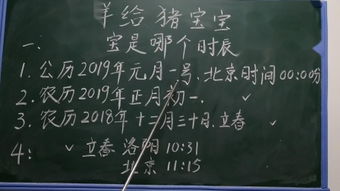 羊给猪宝宝
一、宝是哪个时辰
1. 公历2019年元月一号.北京时间00:00分
2. 农历2019年正月初一. ✓
3. 农历2018年十二月三十日.立春 ✓
4: ✓ 立春 洛阳 10:31
北京 11:15